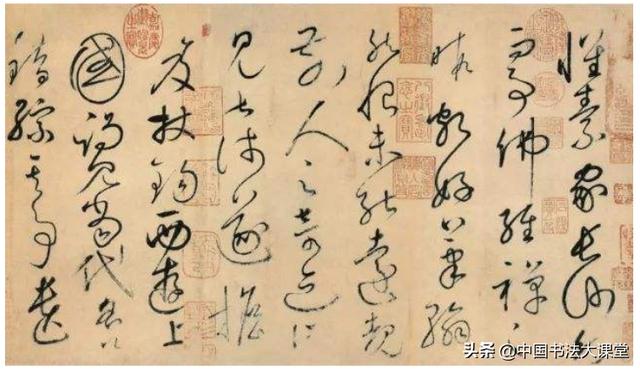 懷素家長沙幼而
事佛經禪之
暇頗好筆翰
然恨未能遠覩
前人之奇迹所
見甚淺遂擔
笈杖錫西遊上
國謁見當代名公
錯綜其事遺
头条 @中国书法大课堂